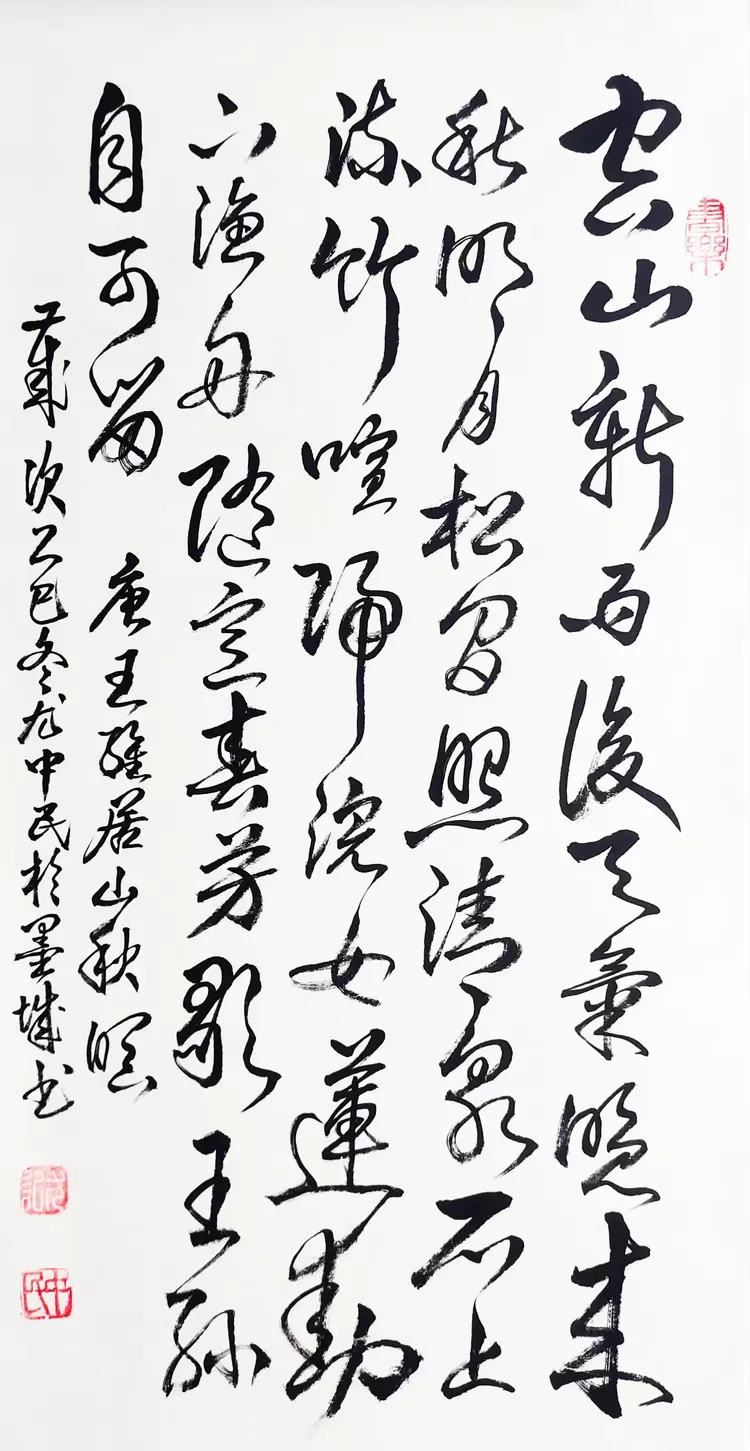 空山新雨後天氣晚来
秋明月松間照清泉石上
流竹喧歸浣女蓮動
下漁舟隨意春芳歇王孫
自可留 唐王維居山秋暝
歲次乙巳冬中民於墨城书